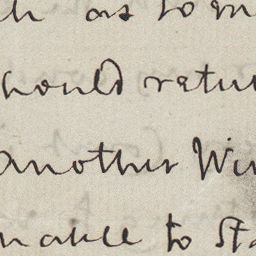 as to
should retu
another Wi
unable to Sta